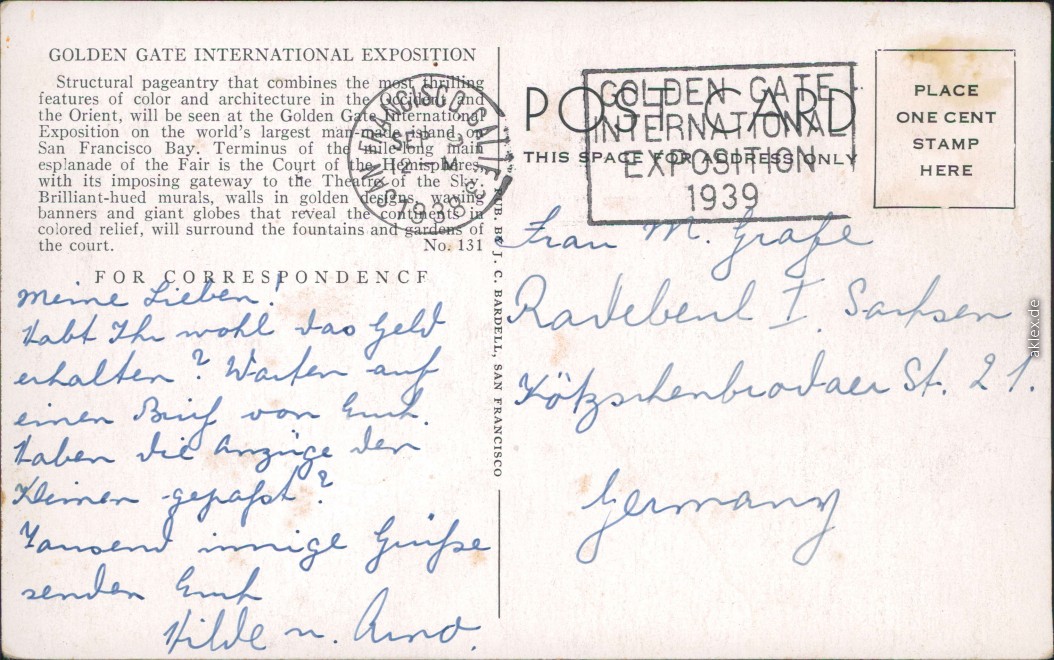 GOLDEN GATE INTERNATIONAL EXPOSITION
Structural pageantry that combines the most thrilling
features of color and architecture in the Occident and
the Orient, will be seen at the Golden Gate International
Exposition on the world's largest man-made island on
San Francisco Bay. Terminus of the mile-long main
esplanade of the Fair is the Court of the Hemispheres,
with its imposing gateway to the Theatre of the Sky.
Brilliant-hued murals, walls in golden designs, waving
banners and giant globes that reveal the continents in
colored relief, will surround the fountains and gardens of
the court. No. 131
FOR CORRESPONDENCE
Meine Lieben!
Habt Ihr wohl das Geld
erhalten? Warten auf
einen Brief von Euch.
Haben die Anzüge den
Kleinen gepaßt?
Tausend innige Grüße
senden Euch
Hilde u. Arno.
PUB. BY J. C. BARDELL, SAN FRANCISCO
SAN FRANCISCO CALIF.
SEP
M
1938
GOLDEN GATE
INTERNATIONAL
EXPOSITION
1939
POST CARD
THIS SPACE FOR ADDRESS ONLY
PLACE
ONE CENT
STAMP
HERE
Frau M. Grafe
Radebeul I. Sachsen
Kötzschenbrodaer St. 21.
Germany
aklex.de